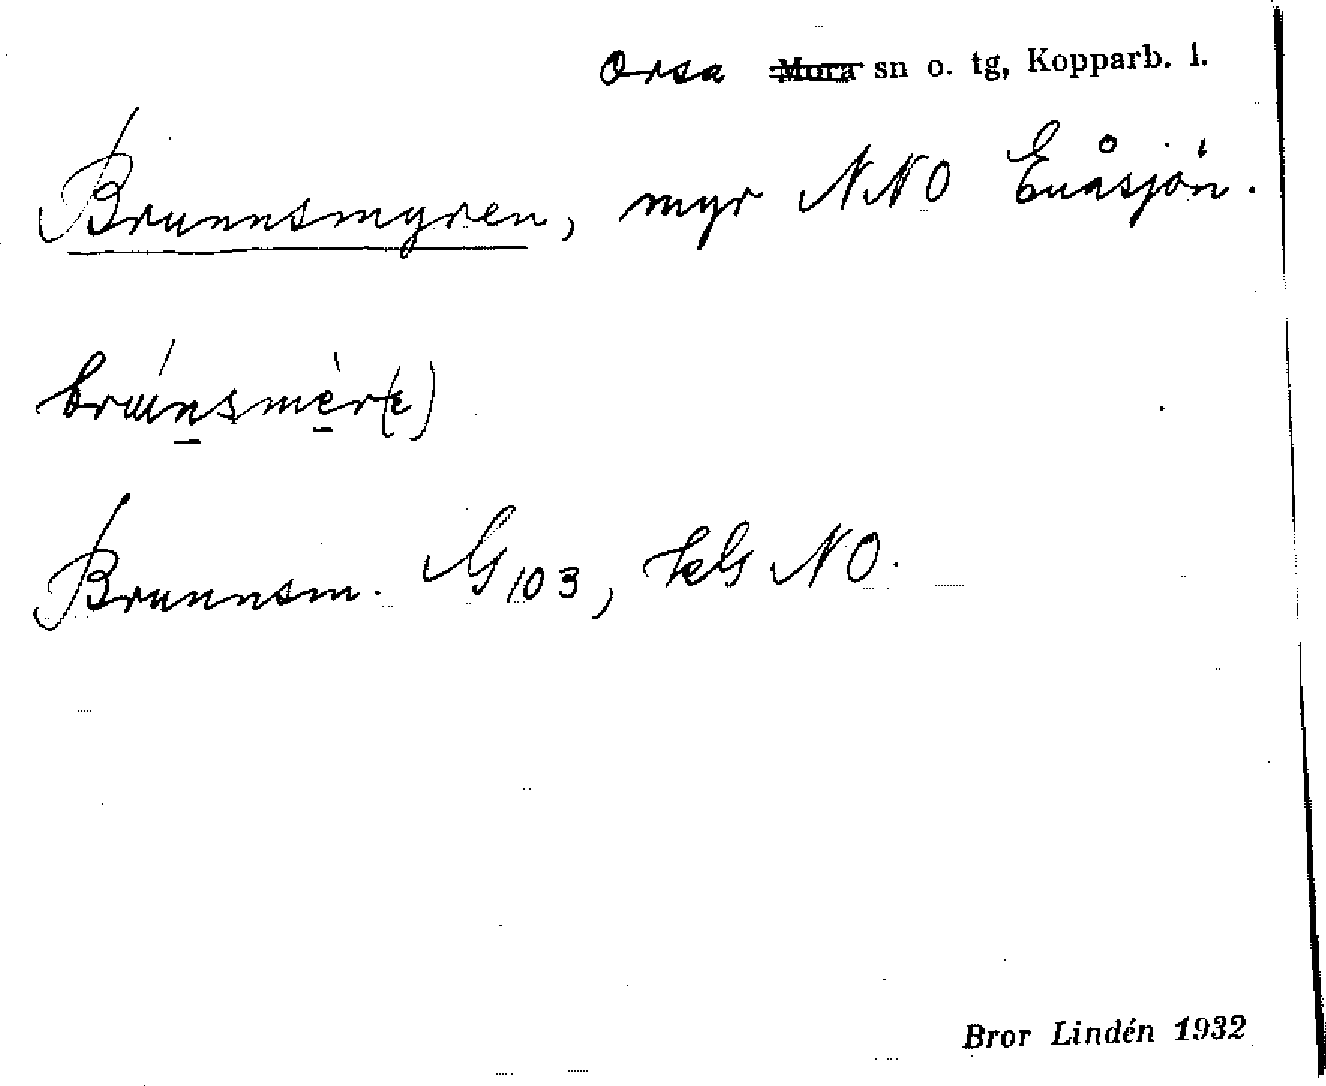 Orsa Mora sn o. tg, Kopparb. l.
Brunnsmyren, myr NNO Enåsjön.
brúnsmèr(e)
Brunnsm. G103, NO.
Bror Lindén 1932